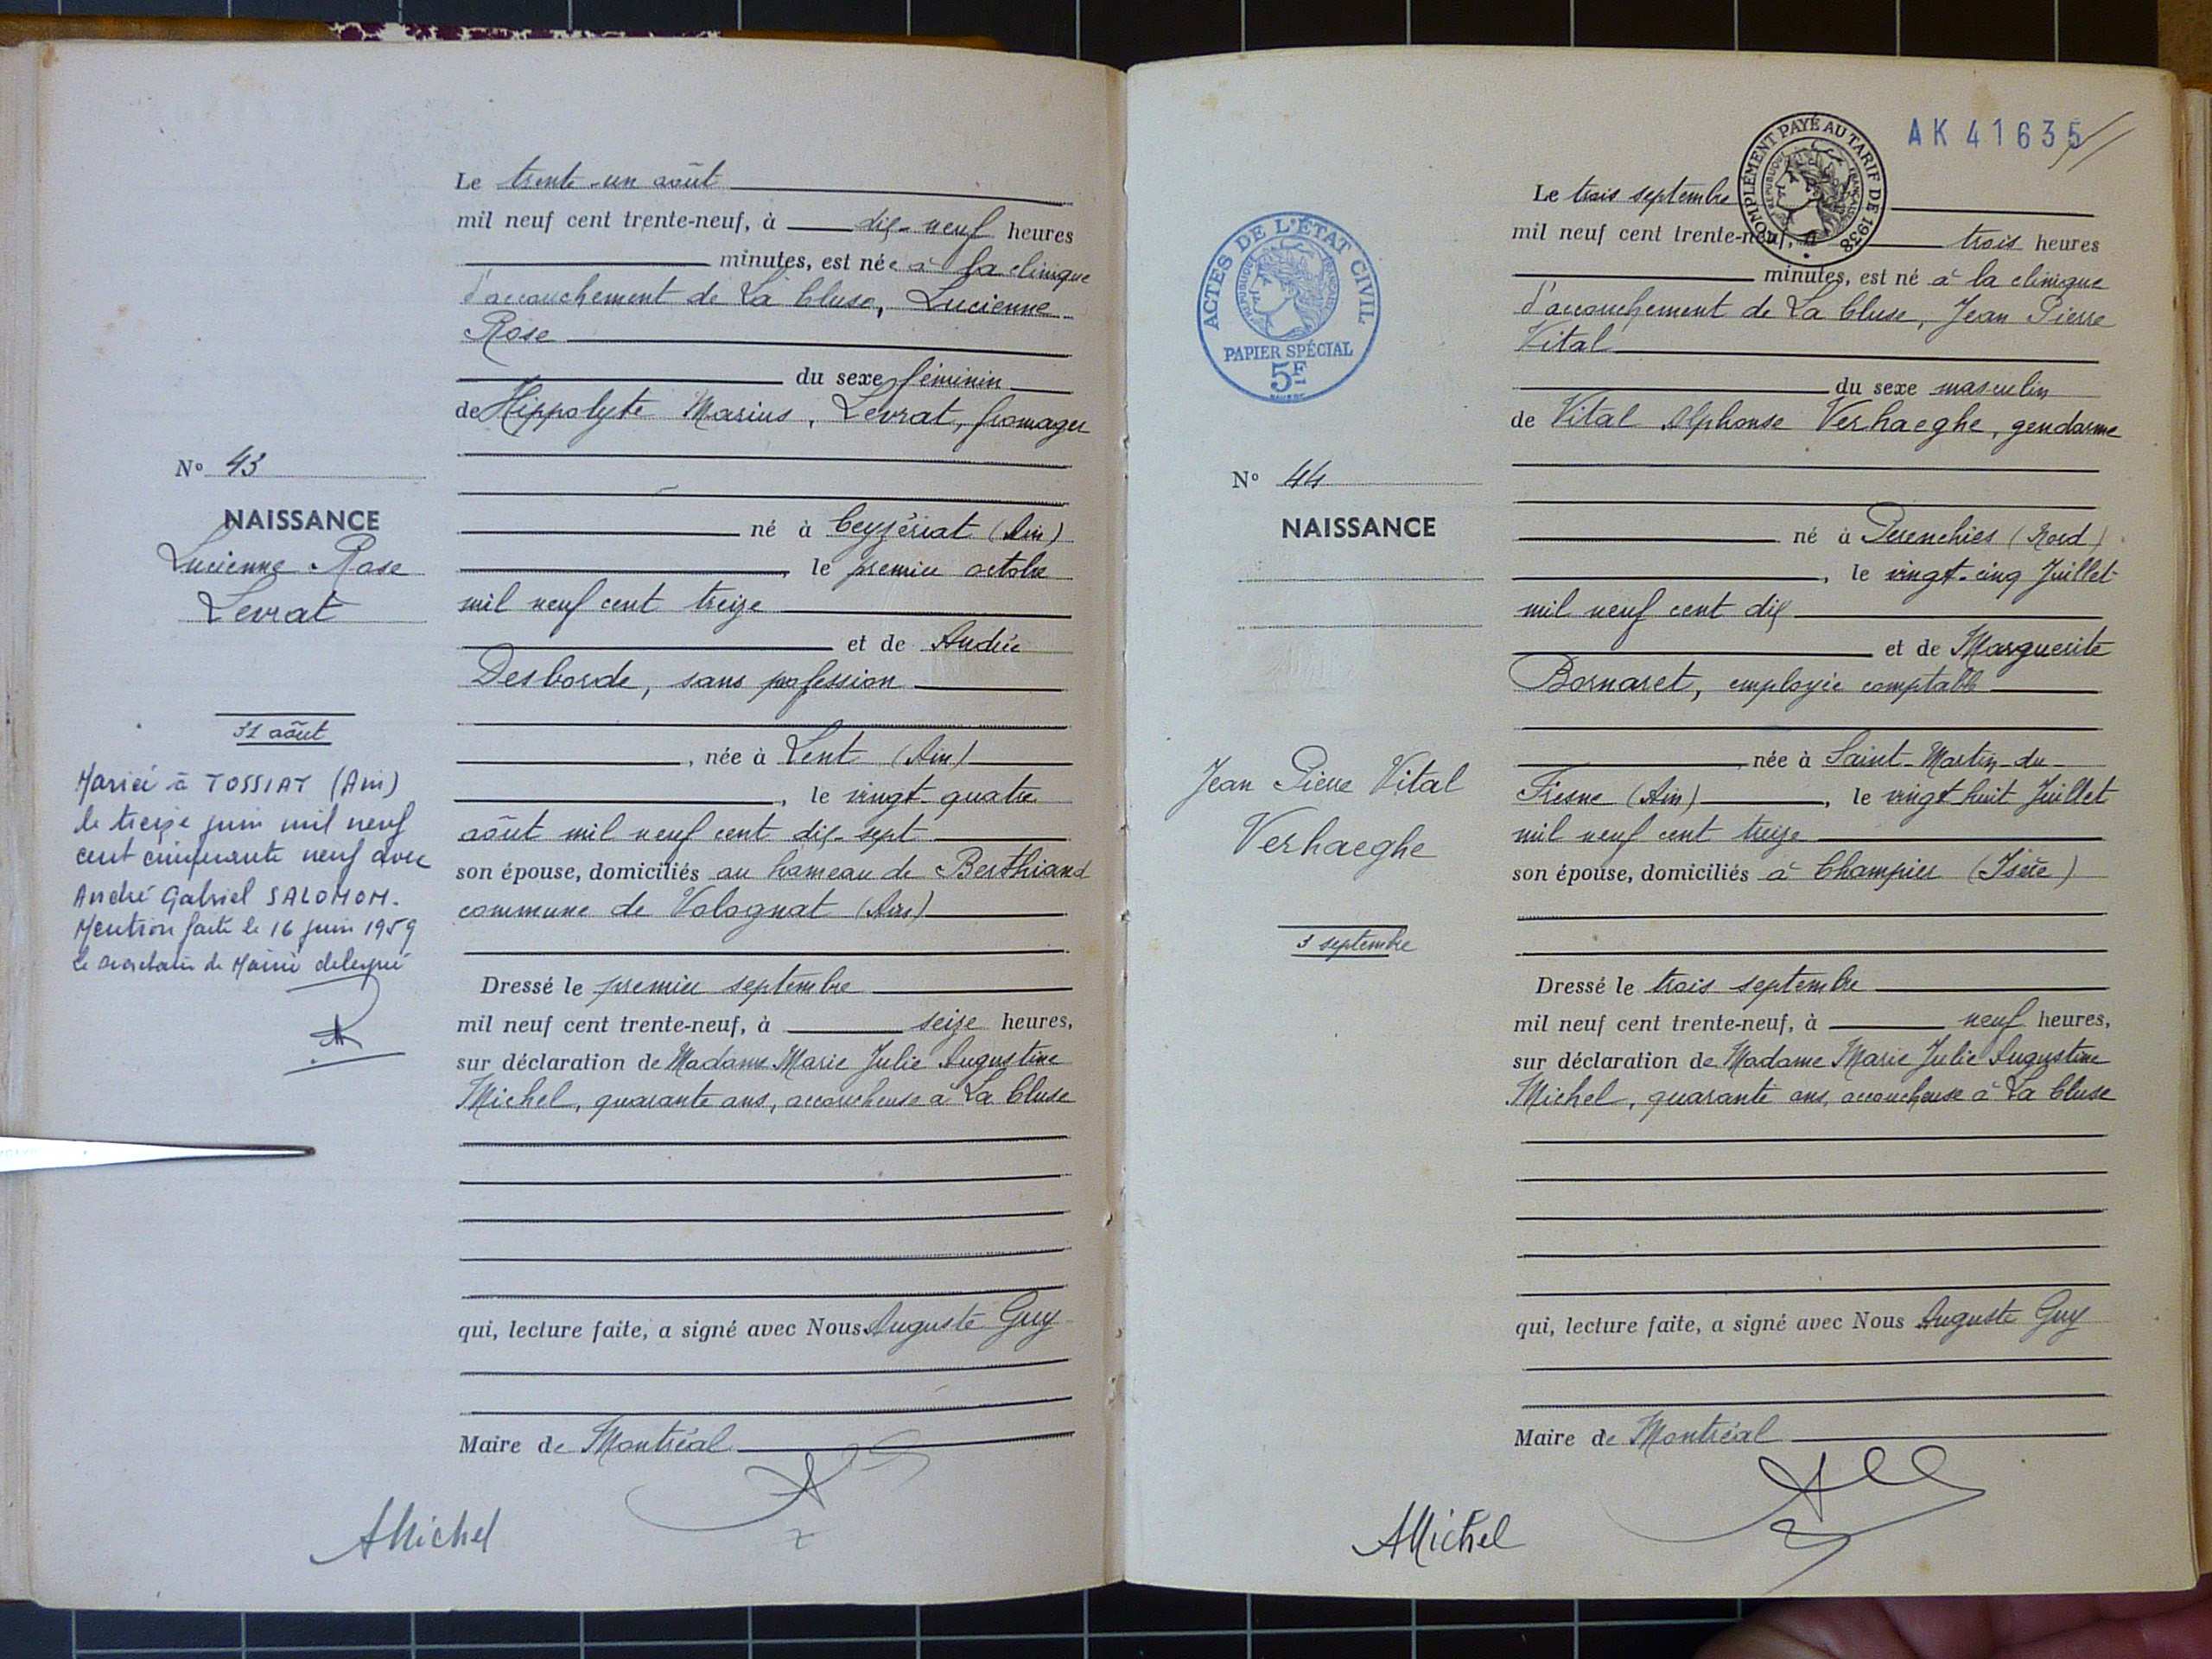 Le trente-un août
mil neuf cent trente-neuf, à dix-neuf heures
minutes, est née à la clinique
d'accouchement de La Cluse, Lucienne
Rose
du sexe féminin
de Hippolyte Marius, Levrat, fromager
né à Ceyzériat (Ain)
, le premier octobre
mil neuf cent treize
et de Andrée
Desborde, sans profession
, née à Lent (Ain)
, le vingt-quatre
août mil neuf cent dix-sept
son épouse, domiciliés au hameau de Berthiand
commune de Volognat (Ain)
Dressé le premier septembre
mil neuf cent trente-neuf, à seize heures,
sur déclaration de Madame Marie Julie Augustine
Michel, quarante ans, accoucheuse à La Cluse
qui, lecture faite, a signé avec Nous Auguste Guy
Maire de Montréal
AMichel
No 43
NAISSANCE
Lucienne Rose
Levrat
31 août
Mariée à TOSSIAT (Ain)
le treize juin mil neuf
cent cinquante neuf avec
André Gabriel SALOMON.
Mention faite le 16 juin 1959
Le secrétaire de Mairie délégué
AK 41635
COMPLÉMENT PAYÉ AU TARIF DE 1938
RÉPUBLIQUE FRANÇAISE
ACTES DE L'ÉTAT CIVIL
RÉPUBLIQUE FRANÇAISE
PAPIER SPÉCIAL
5F
Le trois septembre
mil neuf cent trente-neuf, à trois heures
minutes, est né à la clinique
d'accouchement de La Cluse, Jean Pierre
Vital
du sexe masculin
de Vital Alphonse Verhaeghe, gendarme
né à Perenchies (Nord)
, le vingt-cinq Juillet
mil neuf cent dix
et de Marguerite
Bornaret, employée comptable
née à Saint-Martin-du-
Fresne (Ain), le vingt huit Juillet
mil neuf cent treize
son épouse, domiciliés à Champier (Isère)
Dressé le trois septembre
mil neuf cent trente-neuf, à neuf heures,
sur déclaration de Madame Marie Julie Augustine
Michel, quarante ans, accoucheuse à La Cluse
qui, lecture faite, a signé avec Nous Auguste Guy
Maire de Montréal
AMichel
No 44
NAISSANCE
Jean Pierre Vital
Verhaeghe
3 septembre